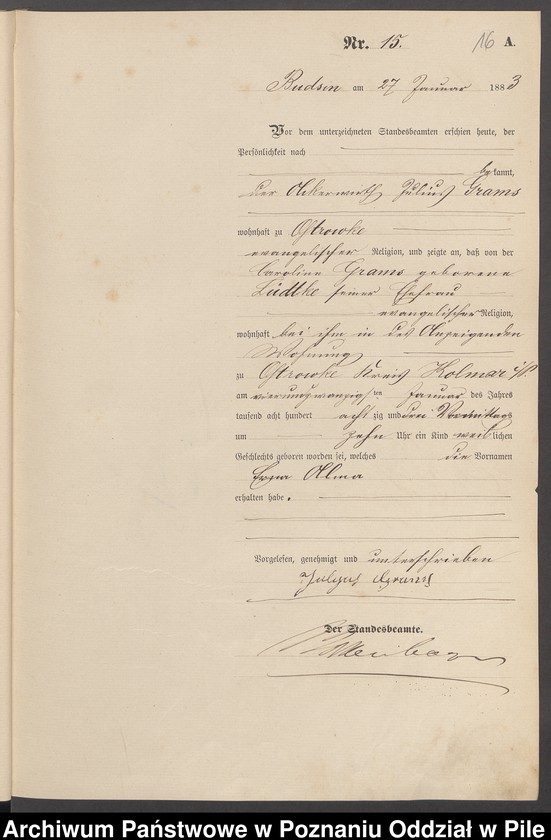 Nr. 15.
16 A.
Budsin am 27 Januar 1883
Vor dem unterzeichneten Standesbeamten erschien heute, der
Persönlichkeit nach
bekannt,
der Ackerwirth Julius Grams
wohnhaft zu Ostrowke
evangelischer Religion, und zeigte an, daß von der
Caroline Grams geborene
Lüdtke seiner Ehefrau
evangelischer Religion,
wohnhaft bei ihm in des Anzeigenden
Wohnung
zu Ostrowke Kreis Kolmar i/P.
am vierundzwanzigsten Januar des Jahres
tausend acht hundert achtzig und drei Vormittags
um zehn Uhr ein Kind weiblichen
Geschlechts geboren worden sei, welches die Vornamen
Erna Alma
erhalten habe.
Vorgelesen, genehmigt und unterschrieben
Julius Grams
Der Standesbeamte.
Archiwum Państwowe w Poznaniu Oddział w Pile